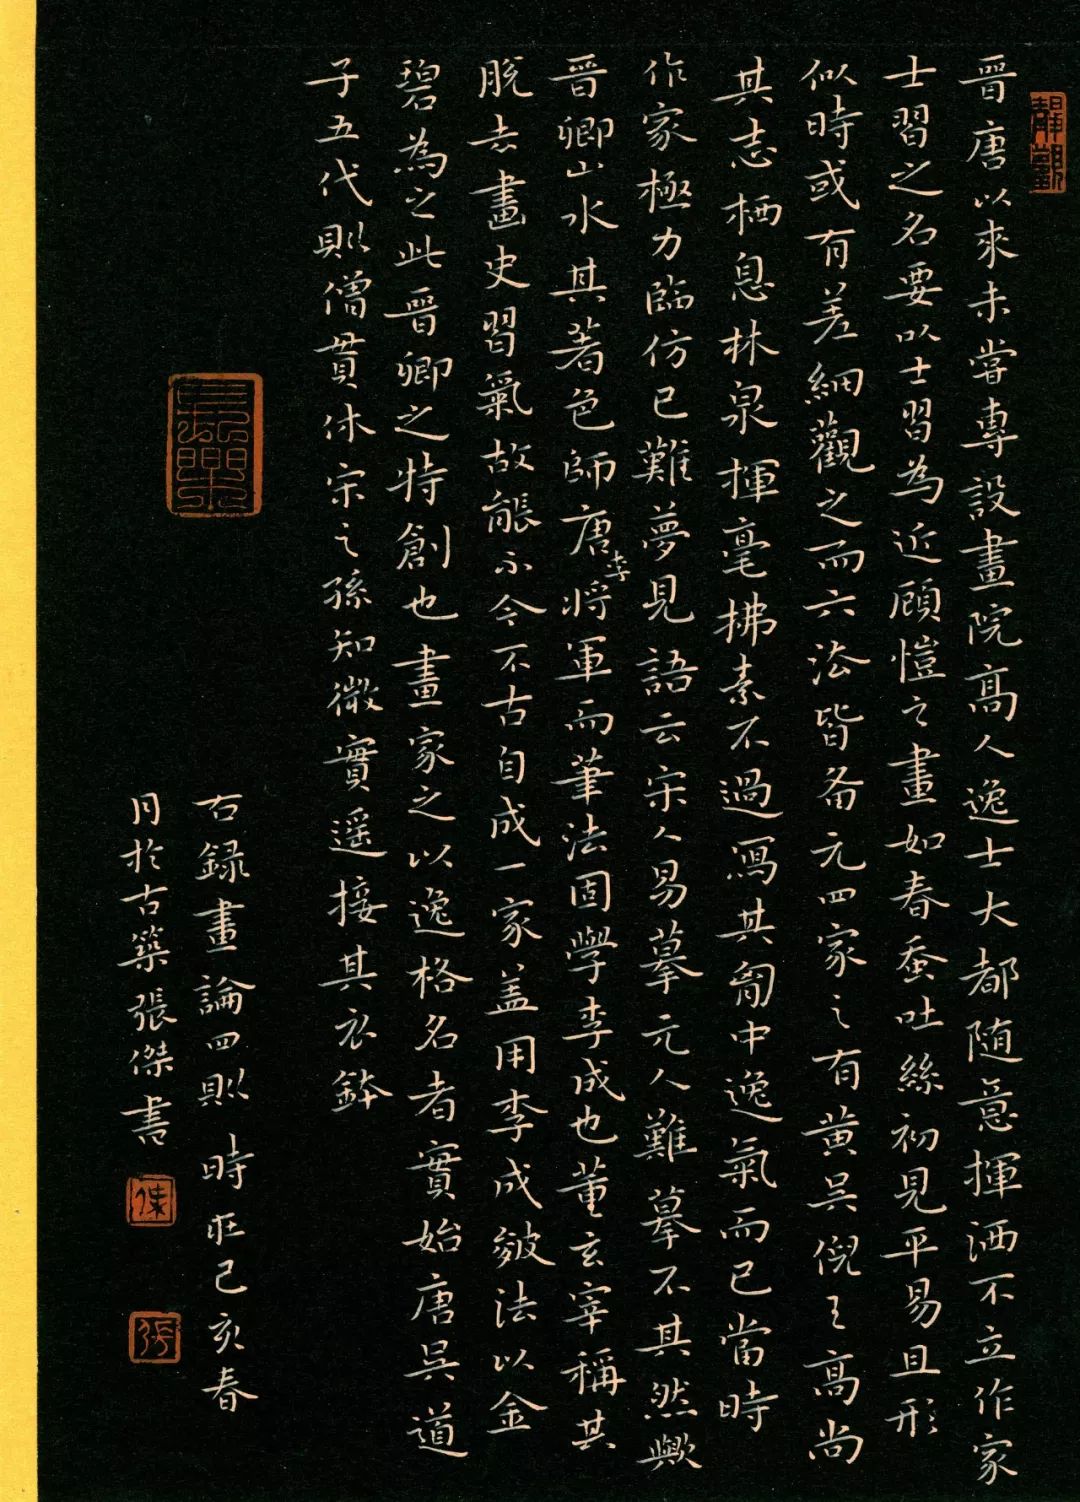 靜觀
晉唐以來未嘗專設畫院高人逸士大都随意揮洒不立作家
士習之名要以士習為近顧愷之畫如春蚕吐絲初見平易且形
似時或有差細觀之而六法皆备元四家之有黄吴倪王高尚
其志栖息林泉揮毫拂素不過寫其匈中逸氣而已當時
作家極力臨仿已難夢見語云宋人易摹元人難摹不其然歟
晉卿山水其著色師唐李將軍而筆法固學李成也董玄宰稱其
脱去畫史習氣故能不今不古自成一家盖用李成皴法以金
碧為之此晉卿之特創也畫家之以逸格名者實始唐吴道
子五代則僧貫休宋之孫知微實遥接其衣鉢
右録畫論四則時在己亥春
月於古築張傑書
長樂
傑
張